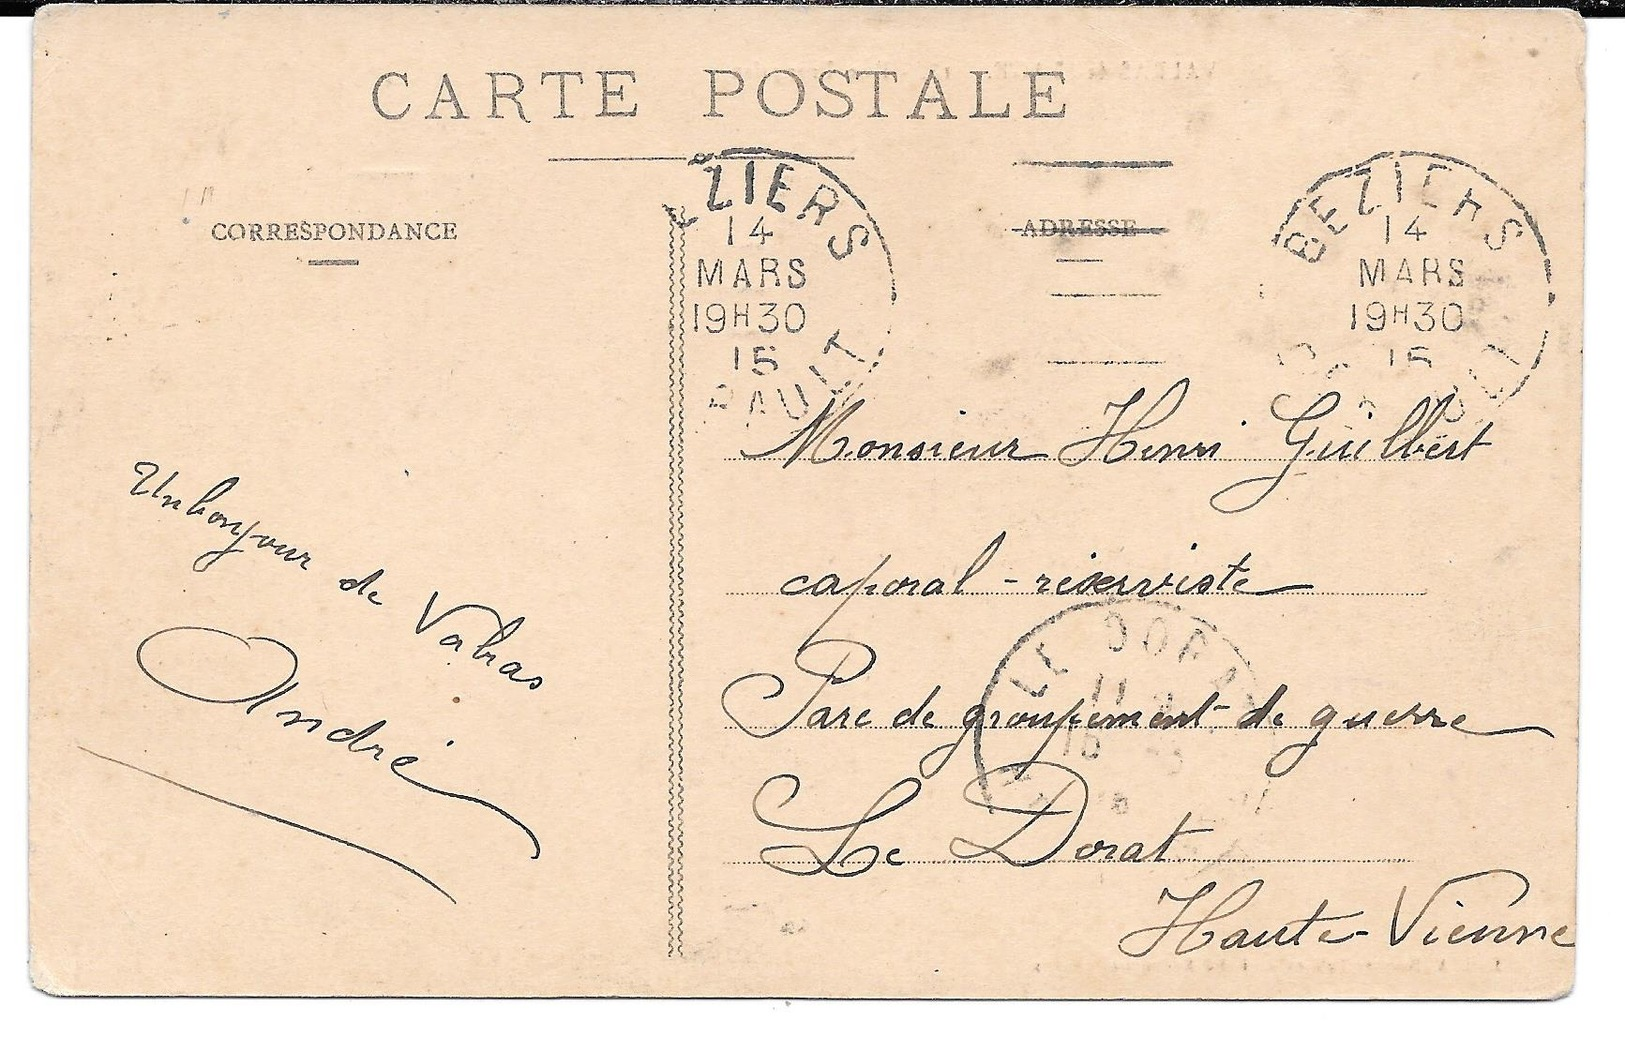 CARTE POSTALE
CORRESPONDANCE
ADRESSE
EZIERS
14
MARS
19H30
15
RAULT
BEZIERS
14
MARS
19H30
15
Un bonjour de Valras
André
Monsieur Henri Guilbert
caporal-réserviste
Parc de groupement de guerre
Le Dorat
Haute-Vienne
LE DORA